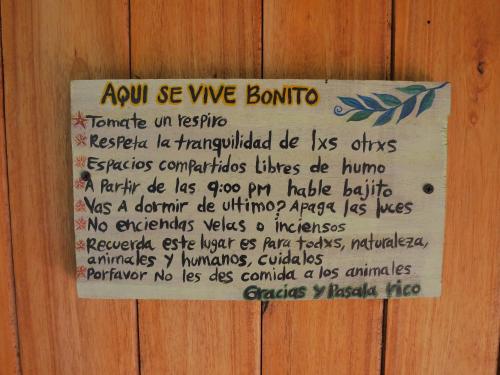 AQUI SE VIVE BONITO
Tomate un respiro
Respeta la tranquilidad de lxs otrxs
Espacios compartidos Libres de humo
A Partir de las 9:00 pm hable bajito
Vas A dormir de ultimo? Apaga las luces
No enciendas velas o inciensos
Recuerda este lugar es para todxs, naturaleza,
animales y humanos, cuidalos
Porfavor No les des comida a los animales
Gracias y Pasala rico